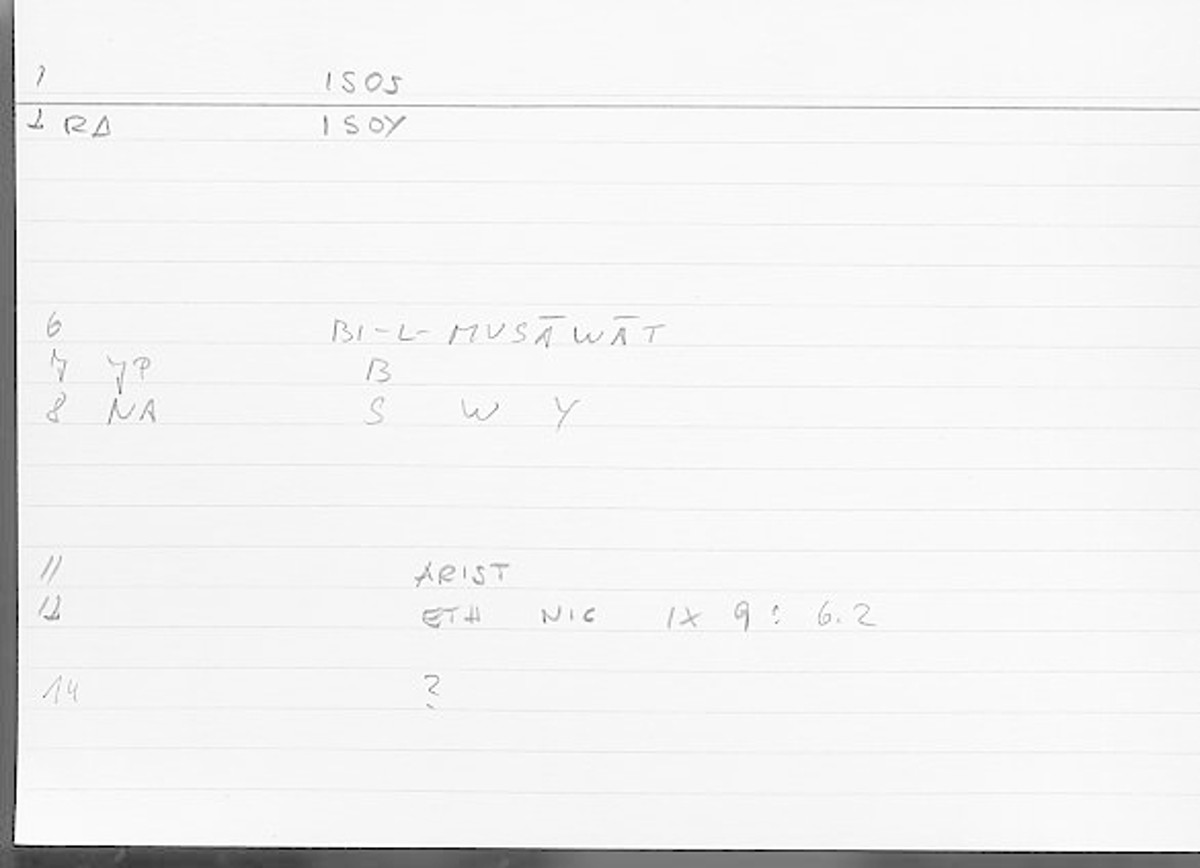 1 ISOS
2 RA ISOY
6 BI-L-MUSĀWĀT
7 YP B
8 NA S W Y
11 ARIST
12 ETH NIC IX 9: 6.2
14 ?